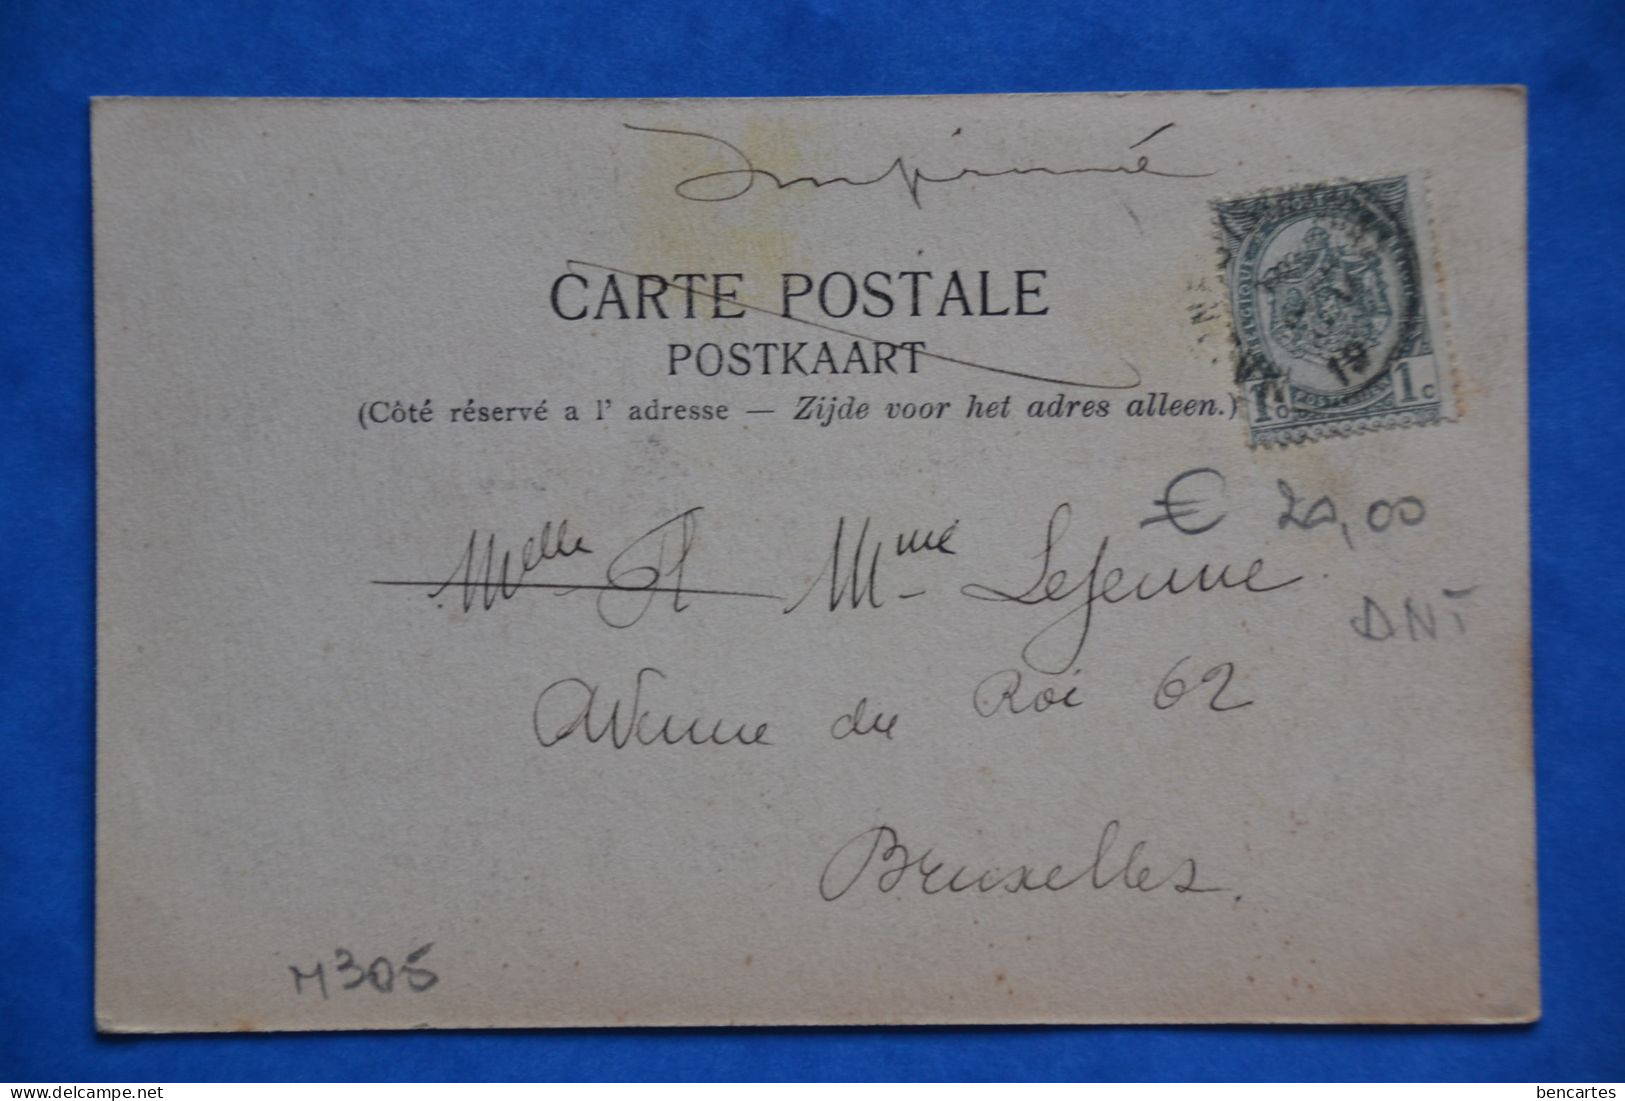 Imprimé
CARTE POSTALE
POSTKAART
(Côté réservé a l' adresse — Zijde voor het adres alleen.)
BELGIQUE
1c 1c
€ 20,00
Melle Fl Mme Lejeune
DNT
Avenue du Roi 62
Bruxelles.
M305
bencartes